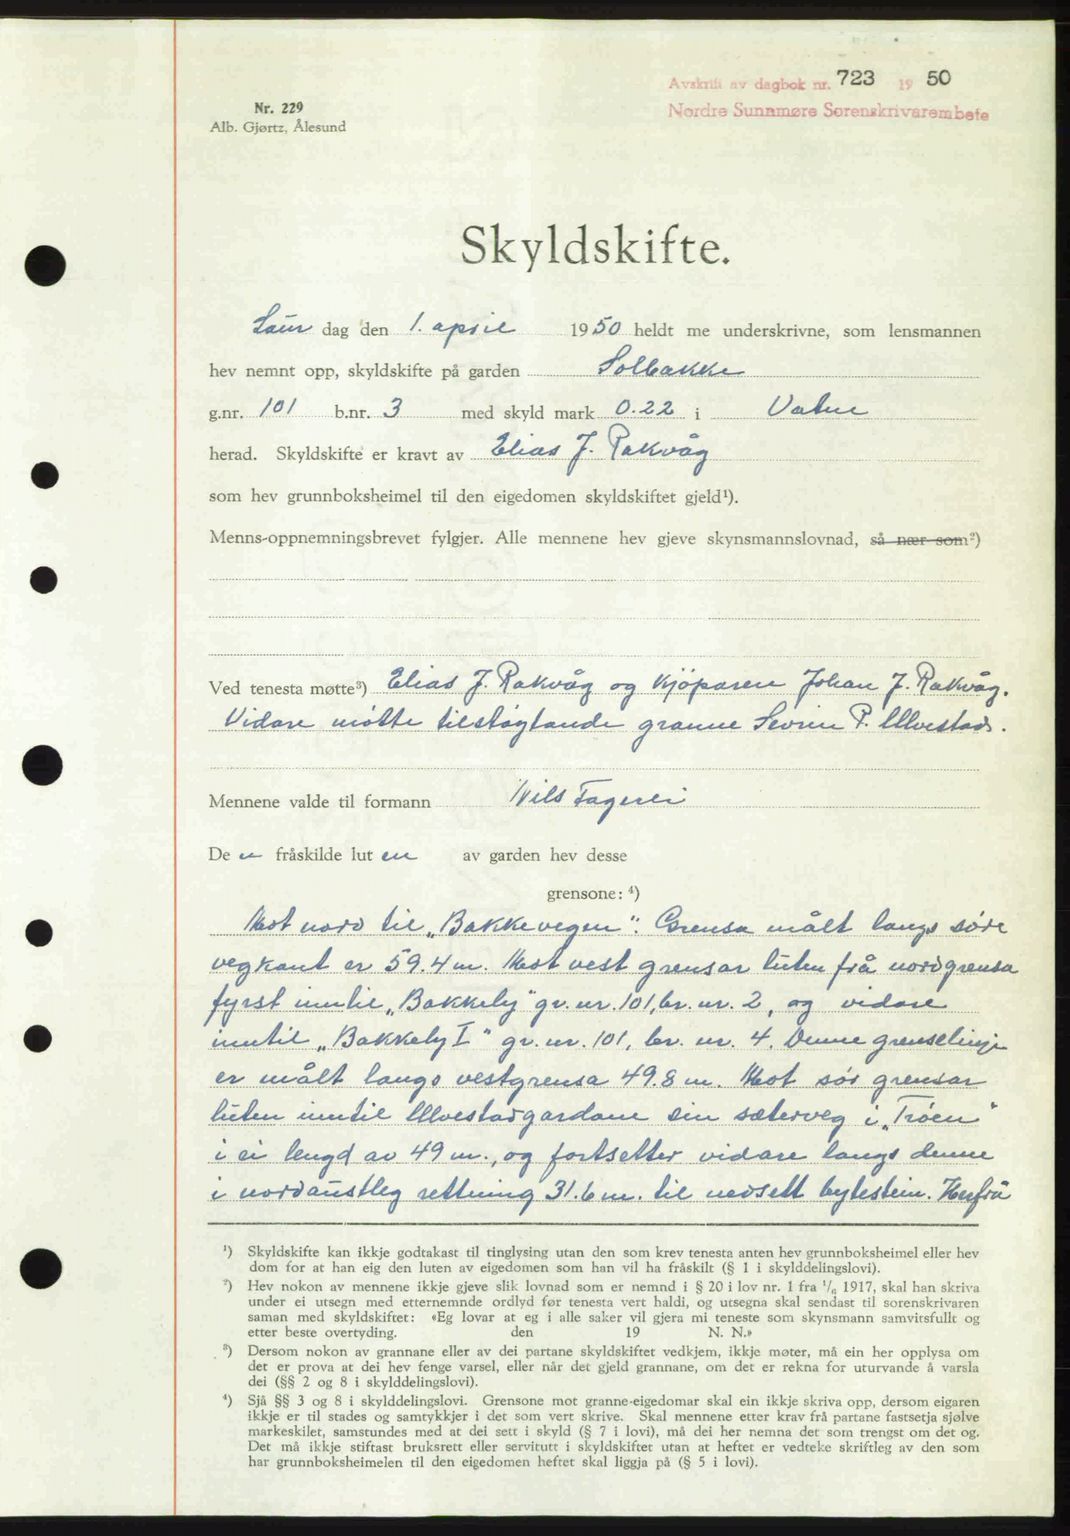 Avskrift av dagbok nr. 723 1950
Nordre Sunnmøre Sorenskrivarembete
Nr. 229
Alb. Gjørtz, Ålesund
Skyldskifte.
Laur dag den 1. april 1950 heldt me underskrivne, som lensmannen
hev nemnt opp, skyldskifte på garden Solbakke
g.nr. 101 b.nr. 3 med skyld mark 0.22 i Vatne
herad. Skyldskifte er kravt av Elias J. Rakvåg
som hev grunnboksheimel til den eigedomen skyldskiftet gjeld¹).
Menns-oppnemningsbrevet fylgjer. Alle mennene hev gjeve skynsmannslovnad, så nær som²)
Ved tenesta møtte³) Elias J. Rakvåg og kjöparen Johan J. Rakvåg.
Vidare møtte tilstøytande granne Sevrin P. Ulvestad.
Mennene valde til formann Nils Fagerli
De n fråskilde luten av garden hev desse
grensone: ⁴)
Mot nord til „Bakkevegen". Grensa målt langs søre
vegkant er 59.4 m. Mot vest grensar luten frå nordgrensa
fyrst inntil „Bakkely" gr. nr. 101, br. nr. 2, og vidare
inntil „Bakkely I" gr. nr. 101, br. nr. 4. Denne grenselinje
er målt langs vestgrensa 49.8 m. Mot sør grensar
luten inntil Ulvestadgardane sin sæterveg i „Trøen"
i ei lengd av 49 m., og fortsetter vidare langs denne
i nordaustleg rettning 31.6 m. til nedsett bytestein. Herfrå
¹) Skyldskifte kan ikkje godtakast til tinglysing utan den som krev tenesta anten hev grunnboksheimel eller hev
dom for at han eig den luten av eigedomen som han vil ha fråskilt (§ 1 i skylddelingslovi).
²) Hev nokon av mennene ikkje gjeve slik lovnad som er nemnd i § 20 i lov nr. 1 fra ¹/₆ 1917, skal han skriva
under ei utsegn med etternemnde ordlyd før tenesta vert haldi, og utsegna skal sendast til sorenskrivaren
saman med skyldskiftet: «Eg lovar at eg i alle saker vil gjera mi teneste som skynsmann samvitsfullt og
etter beste overtyding. den 19 N. N.»
³) Dersom nokon av grannane eller av dei partane skyldskiftet vedkjem, ikkje møter, må ein her opplysa om
det er prova at dei hev fenge varsel, eller når det gjeld grannane, om det er rekna for uturvande å varsla
dei (§§ 2 og 8 i skylddelingslovi).
⁴) Sjå §§ 3 og 8 i skylddelingslovi. Grensone mot granne-eigedomar skal ein ikkje skriva opp, dersom eigaren
ikkje er til stades og samtykkjer i det som vert skrive. Skal mennene etter krav frå partane fastsetja sjølve
markeskilet, samstundes med at dei sett i skyld (§ 7 i lovi), må dei her nemna det som trengst om det og.
Det må ikkje stiftast bruksrett eller servitutt i skyldskiftet utan at heftet er vedteke skriftleg av den som
har grunnboksheimelen til den eigedomen heftet skal liggja på (§ 5 i lovi).